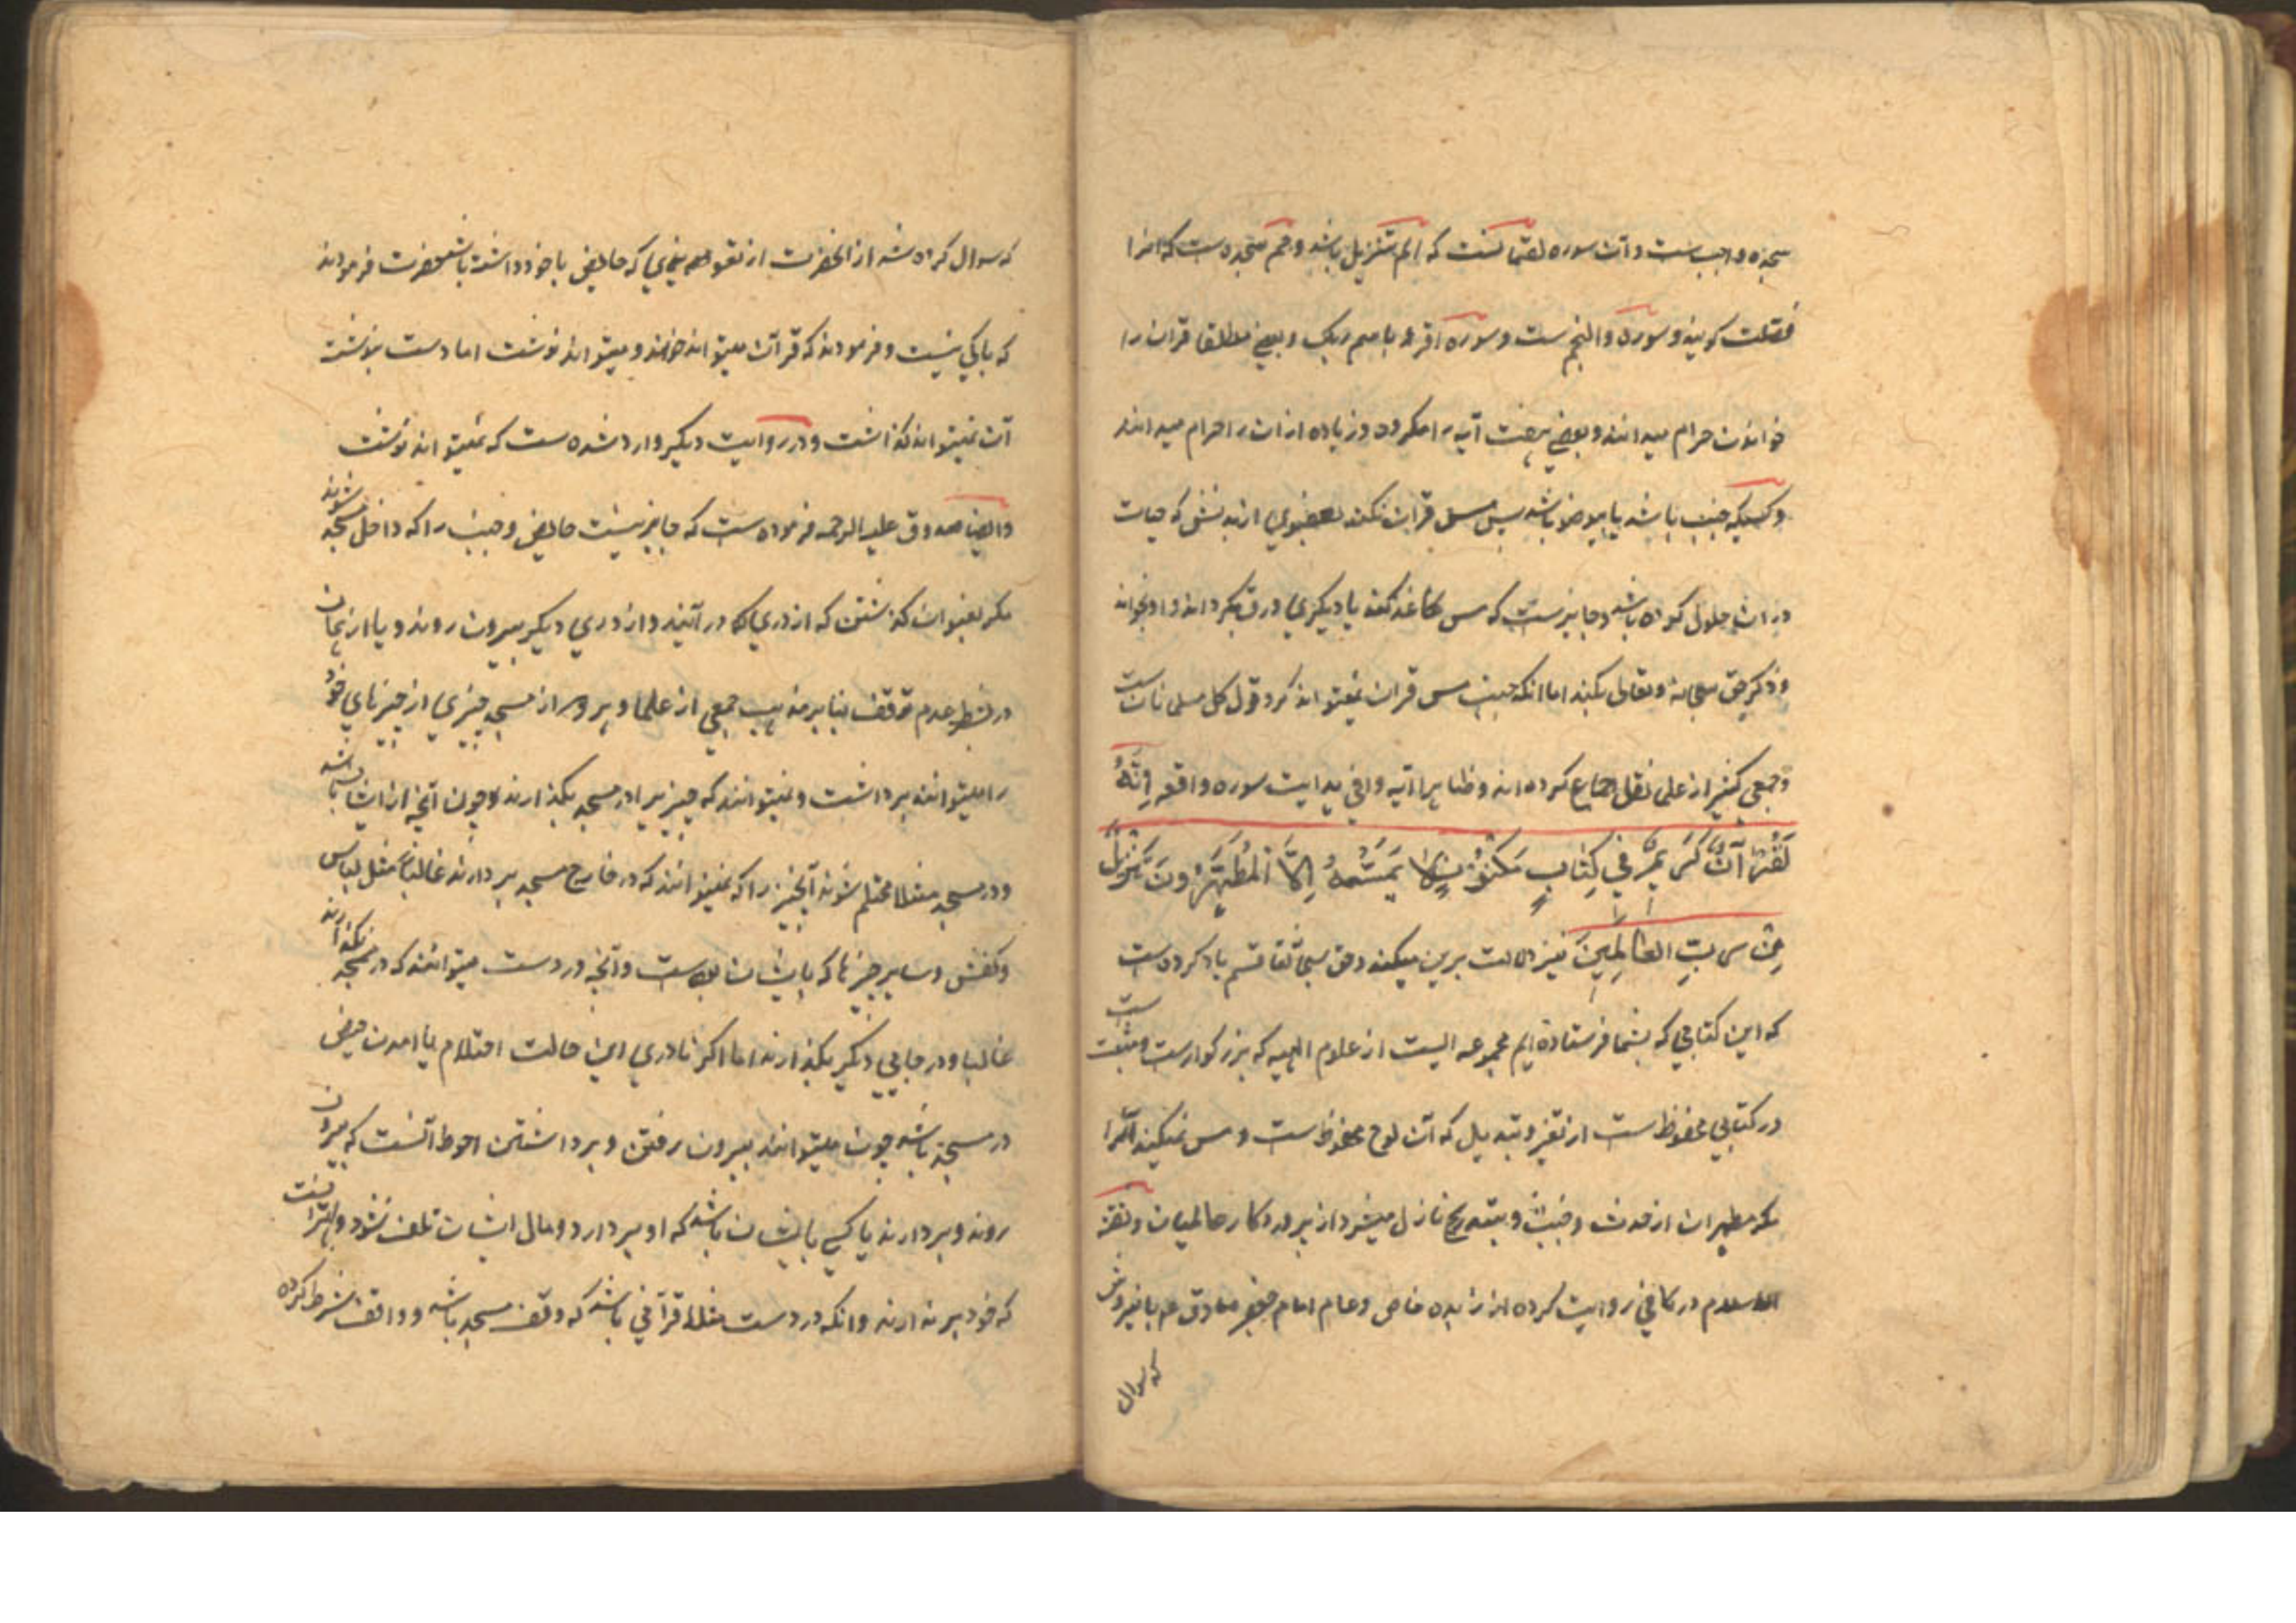 سجده واجبست و آن سوره لقمانست که الم تنزیل باشد و حم سجده ست که انرا
فصلت کویند و سوره والنجم ست و سوره اقرء باسم ربک و بعضی مطلقا قران را
خواندن حرام میدانند و بعضی هفت آیه را مکروه و زیاده از ان را حرام میدانند
و کسیکه جنب باشد یا بیوضو باشد پس مس قران نکند بعضوی از بدنش که حیات
در ان حلول کرده باشد و جایز ست که مس کاغذ کند یا دیکری ورق بکرداند و او بخواند
و ذکر حق سبحانه و تعالی بکند اما انکه جنب مس قران نمیتواند کرد قول کل مسلمانان ست
و جمعی کثیر از علما نقل اجماع کرده اند و ظاهرا آیه وافی هدایت سوره واقعه اِنَّهُ
لَقُرْآنٌ كَرِيمٌ فِي كِتَابٍ مَكْنُونٍ لَا يَمَسُّهُ اِلَّا الْمُطَهَّرُونَ تَنْزِيلٌ
مِنْ رَبِّ الْعَالَمِينَ نیز دلالت برین میکند و حق سبحانه و تعا قسم یاد کرده ست
که این کتابی که بشما فرستاده ایم مجموعه ایست از علوم الهیه که بزرکوارست و مثبت ست
در کتابی محفوظ ست از تغیر و تبدیل که آن لوح محفوظ ست و مس نمیکند آنرا
مکر مطهران از حدث و خبث و بتدریج نازل میشود از پروردکار عالمیان و ثقة
الاسلام در کافی روایت کرده از داود بن فرقد از امام جعفر صادق ع
که سوال
که سوال کرده شد از انحضرت از تعویذی که حایض با خود داشته باشد حضرت فرمودند
که باکی نیست و فرمودند که قرآن میتواند خواند و میتواند نوشت اما دست بنوشته
آن نمیتواند کذاشت و در روایت دیکر وارد شده ست که نمیتواند نوشت
و ایضا صدوق علیه الرحمه فرموده ست که جایز نیست حایض و جنب را که داخل مسجد شوند
مکر بعنوان کذشتن که از دری که در آیند و از دری دیکر بیرون روند و یا از همان
در بشرط عدم توقف بنا بر مذهب جمعی از علما و هر دو از مسجد چیزی از چیزهای خود
را میتوانند برداشت و نمیتوانند که چیزیرا در مسجد بکذارند و چون آنچه از ایشان باشد
و در مسجد مثلا محتلم شوند آنچیز را که نمیتوانند که در خارج مسجد بردارند غالبا مثل لباس
و کفش و سایر چیزها که با ایشان بوده ست و آنچه در دست میتوانند که در مسجد نکذارند
غالبا و در جایی دیکر بکذارند اما اکر نادری این حالت احتلام یا امدن حیض
در مسجد باشد چون میتوانند بیرون رفتن و برداشتن احوط آنست که بیرون
روند و بردارند یا کسی با ایشان باشد که او بردارد و مال ایشان تلف نشود و بهتر آنست
که خود برندارند و انکه در دست مثلا قرآنی باشد که وقف مسجد باشد و واقف شرط کرده